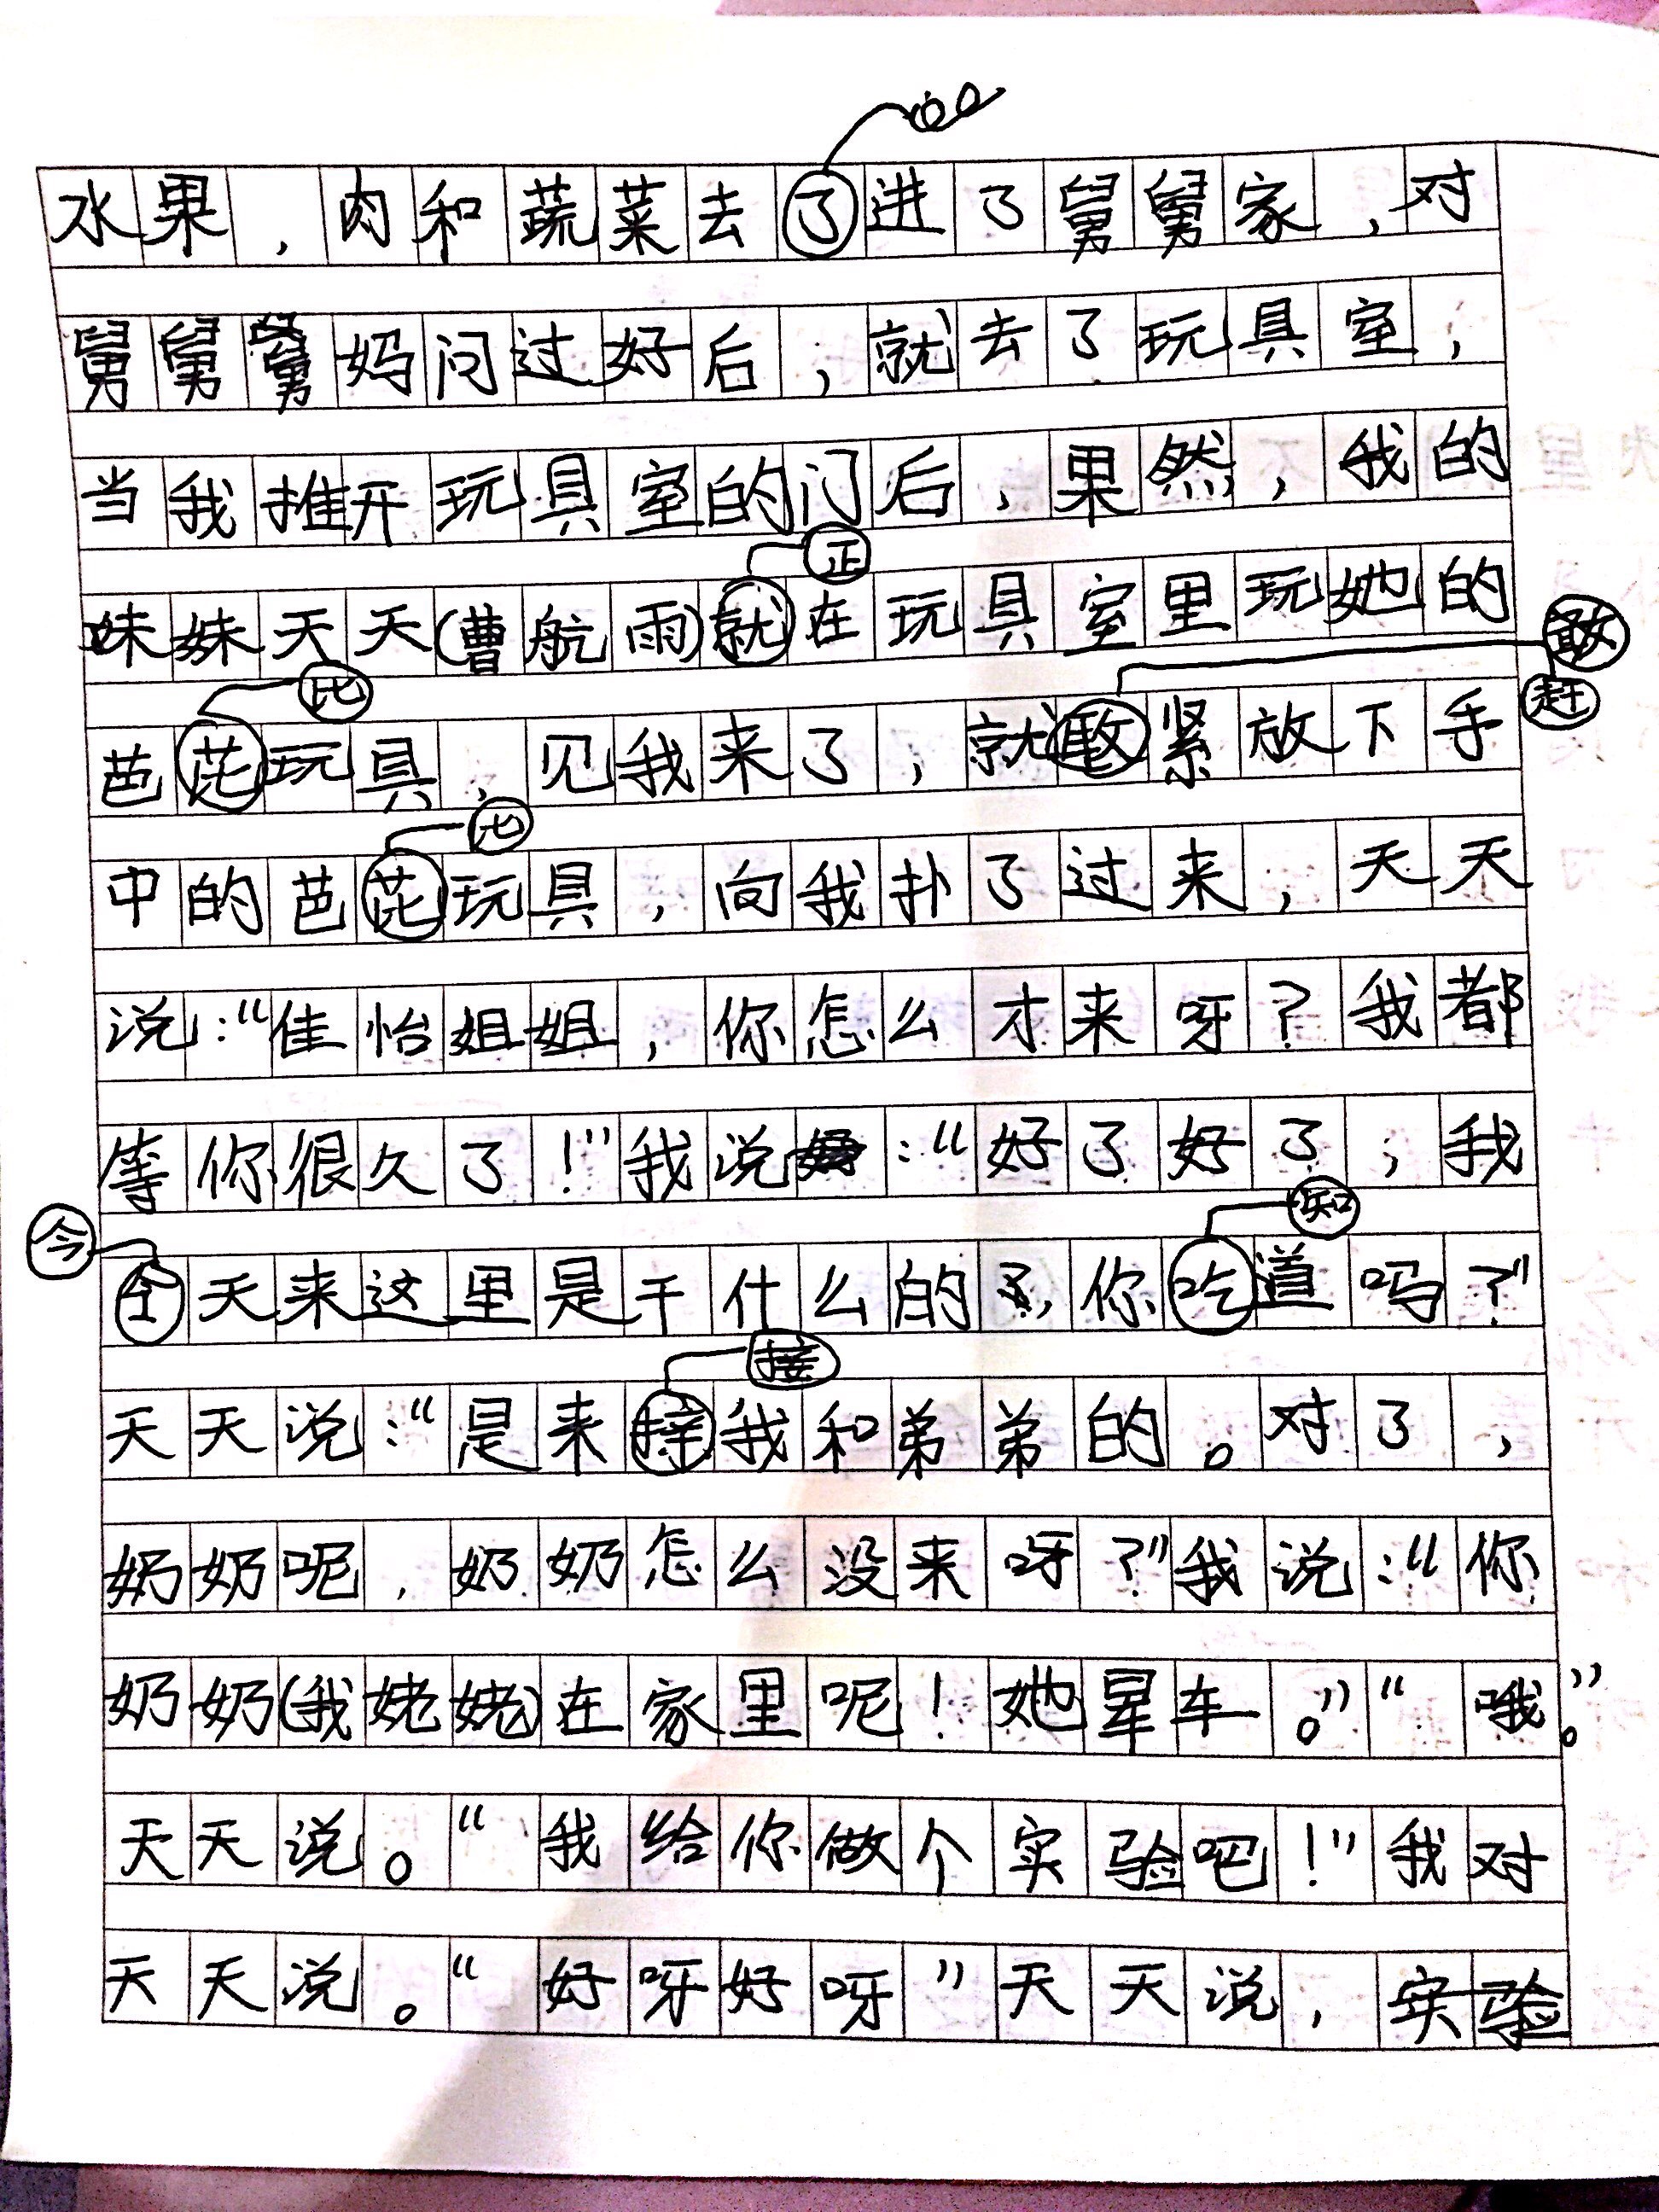 水果，肉和蔬菜去了进了舅舅家，对
舅舅舅妈问过好后，就去了玩具室，
当我推开玩具室的门后，果然，我的
正
妹妹天天(曹航雨)就在玩具室里玩她的
敢
比
赶
芭芘玩具，见我来了，就敢紧放下手
比
中的芭芘玩具，向我扑了过来，天天
说：“佳怡姐姐，你怎么才来呀？我都
等你很久了！”我说：“好了好了，我
今
知
天来这里是干什么的，你吃道吗？”
接
天天说：“是来接我和弟弟的。对了，
奶奶呢，奶奶怎么没来呀？”我说：“你
奶奶(我姥姥)在家里呢！她晕车。”“哦。”
天天说。“我给你做个实验吧！”我对
天天说。“好呀好呀”天天说，实验